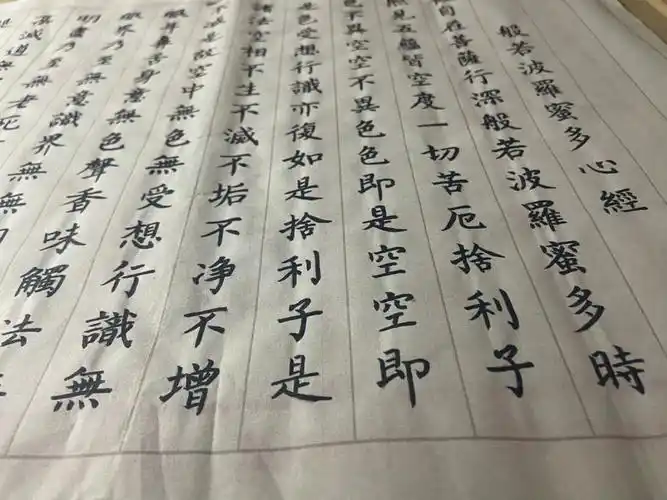 般若波羅蜜多心經
自在菩薩行深般若波羅蜜多時
照見五蘊皆空度一切苦厄捨利子
色不異空空不異色色即是空空即
是色受想行識亦復如是捨利子是
諸法空相不生不滅不垢不净不增
不減是故空中無色無受想行識無
眼耳鼻舌身意無色聲香味觸法
眼界乃至無意識界無
明盡乃至無老死
滅道無